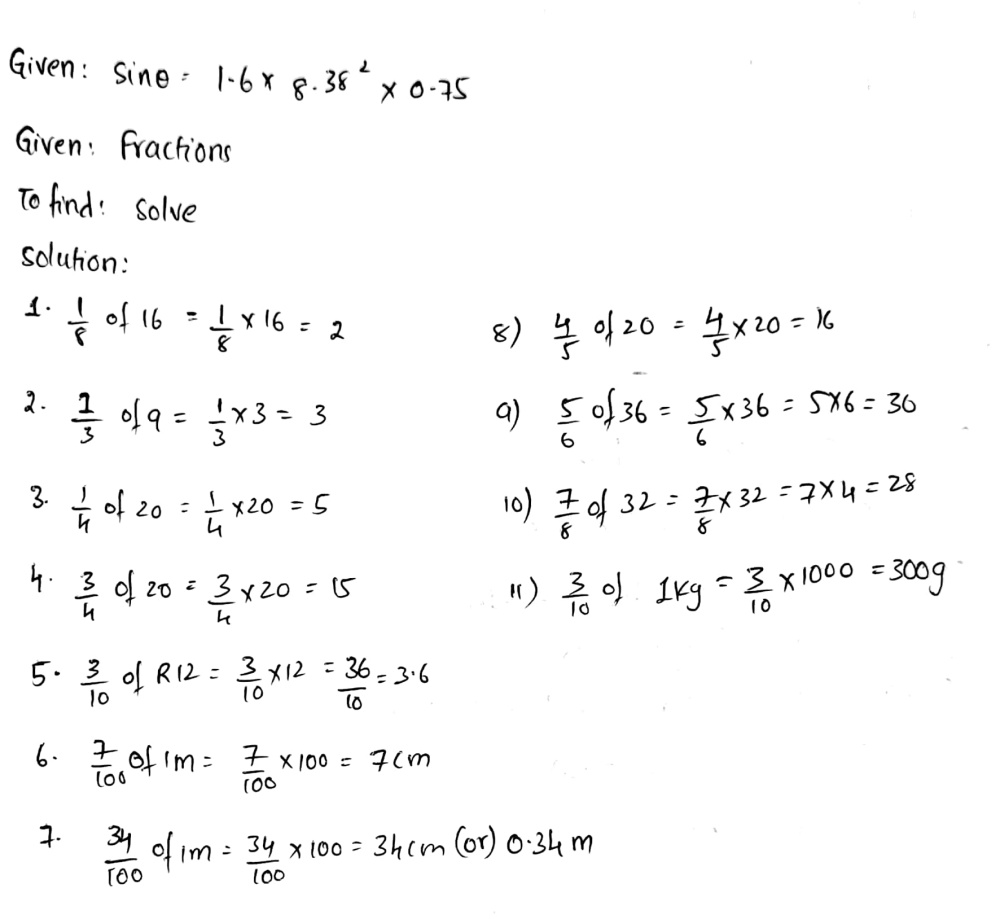 Given: Sinθ = 1.6 × 8.38² × 0.75
Given: Fractions
To find: Solve
Solution:
1. 1/8 of 16 = 1/8 × 16 = 2
2. 1/3 of 9 = 1/3 × 3 = 3
3. 1/4 of 20 = 1/4 × 20 = 5
4. 3/4 of 20 = 3/4 × 20 = 15
5. 3/10 of R12 = 3/10 × 12 = 36/10 = 3.6
6. 7/100 of 1m = 7/100 × 100 = 7cm
7. 34/100 of 1m = 34/100 × 100 = 34cm (or) 0.34 m
8) 4/5 of 20 = 4/5 × 20 = 16
9) 5/6 of 36 = 5/6 × 36 = 5×6 = 30
10) 7/8 of 32 = 7/8 × 32 = 7×4 = 28
11) 3/10 of 1kg = 3/10 × 1000 = 300g